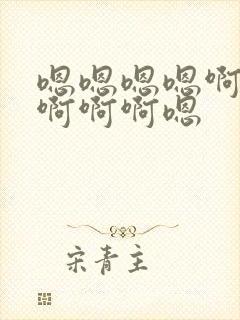 嗯嗯嗯嗯啊
啊啊啊嗯
宋青主